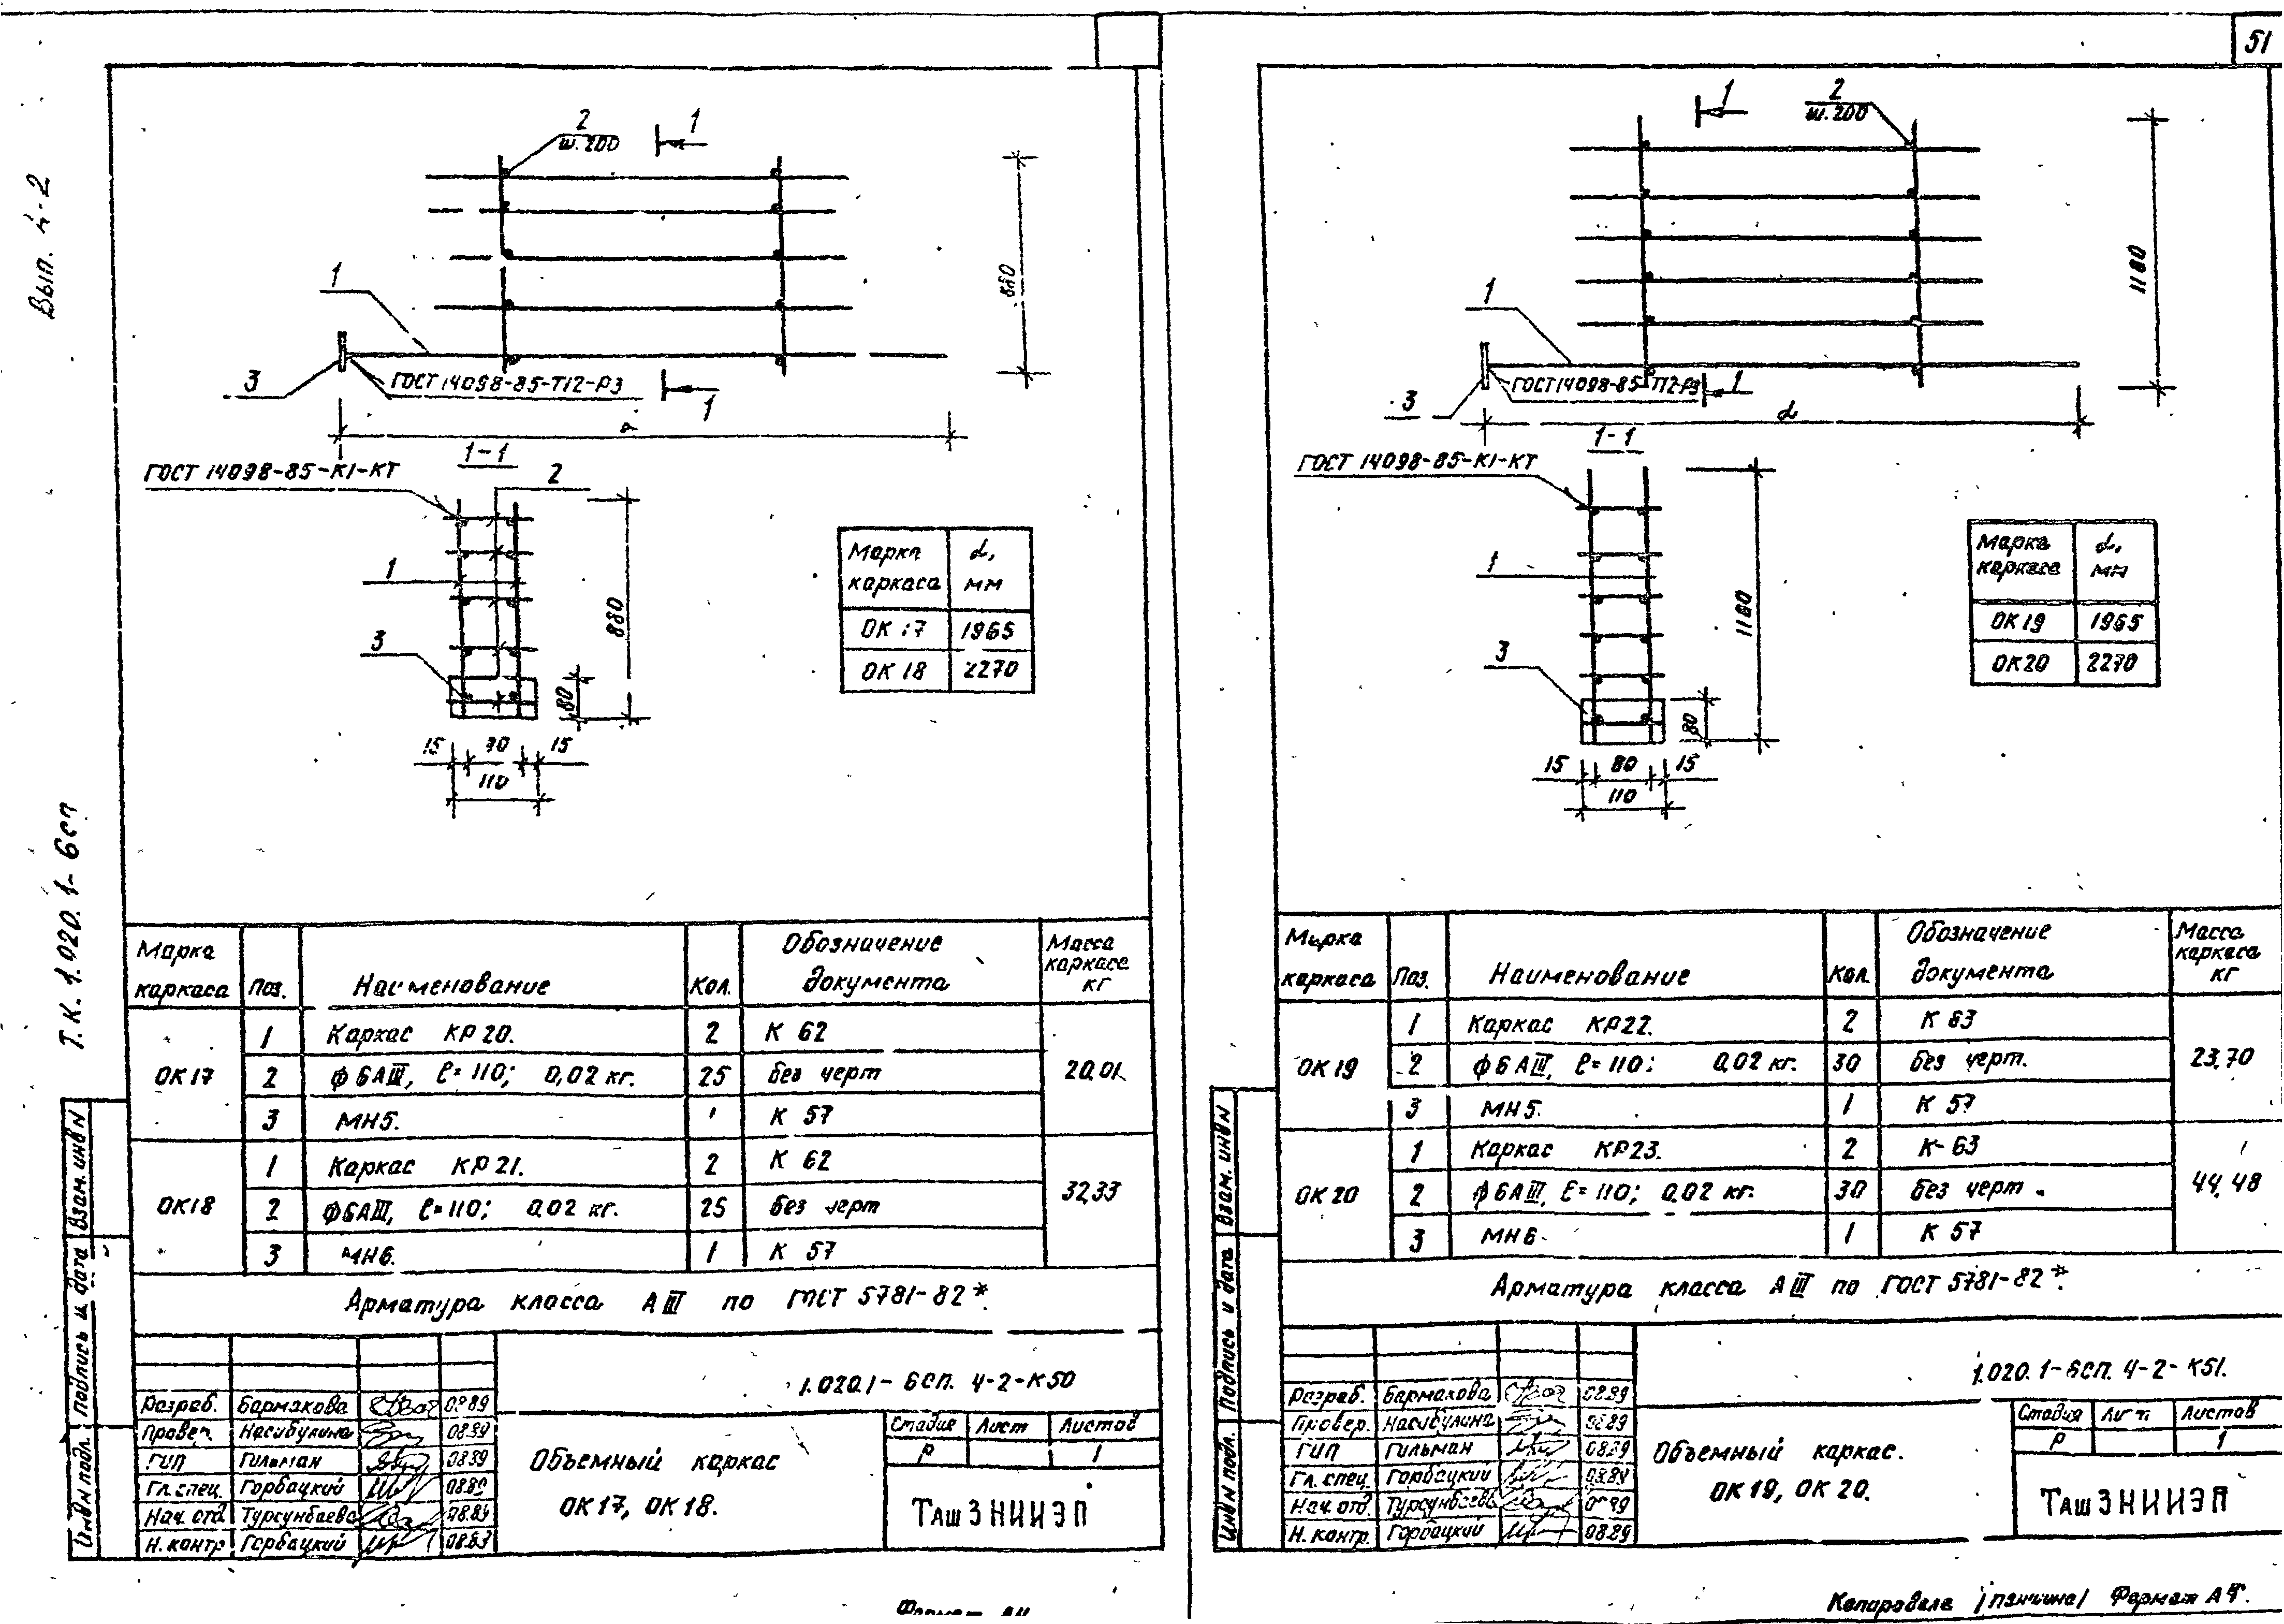 51
Вып. 4-2
Т.К. 1.020.1-6сп
2
ш.200
1
880
1
3
ГОСТ 14098-85-Т12-Р3
1
1-1
ГОСТ 14098-85-К1-КТ
2
1
3
880
80
15 80 15
110
Марка каркаса | d, мм
ОК 17 | 1965
ОК 18 | 2270
Марка каркаса | Поз. | Наименование | Кол. | Обозначение документа | Масса каркаса кг
ОК17 | 1 | Каркас КР20. | 2 | К 62 | 20,01
2 | ф6АIII, ℓ=110; 0,02 кг. | 25 | без черт
3 | МН5. | К 57
ОК18 | 1 | Каркас КР21. | 2 | К 62 | 32,33
2 | ф6АIII, ℓ=110; 0,02 кг. | 25 | без черт
3 | МН6. | 1 | К 57
Арматура класса АIII по ГОСТ 5781-82*.
1.020.1-6сп. 4-2-К50
Разраб. Бармакова 08.89
Провер. Насибулина 08.89
ГИП Гильман 08.89
Гл.спец. Горбацкий 08.89
Нач. отд. Турсунбаева 08.89
Н. контр. Горбацкий 08.89
Объемный каркас
ОК17, ОК18.
Стадия Лист Листов
Р 1
ТашЗНИИЭП
Инв N подл. Подпись и дата Взам. инв N
Формат А4
1
2
ш.200
1180
1
3
ГОСТ 14098-85-Т12-Р3
1
d
1-1
ГОСТ 14098-85-К1-КТ
1
3
1180
80
15 80 15
110
Марка каркаса | d, мм
ОК19 | 1965
ОК20 | 2270
Марка каркаса | Поз. | Наименование | Кол. | Обозначение документа | Масса каркаса кг
ОК19 | 1 | Каркас КР22. | 2 | К 63 | 23,70
2 | ф6АIII, ℓ=110; 0,02 кг. | 30 | без черт.
3 | МН5. | 1 | К 57
ОК20 | 1 | Каркас КР23. | 2 | К-63 | 44,48
2 | ф6АIII, ℓ=110; 0,02 кг. | 30 | без черт.
3 | МН6 | 1 | К 57
Арматура класса АIII по ГОСТ 5781-82*.
1.020.1-6сп. 4-2-К51.
Разраб. Бармакова 08.89
Провер. Насибулина 08.89
ГИП Гильман 08.89
Гл.спец. Горбацкий 08.89
Нач. отд. Турсунбаева 08.89
Н. контр. Горбацкий 08.89
Объемный каркас.
ОК19, ОК20.
Стадия Лист Листов
Р 1
ТашЗНИИЭП
Инв N подл. Подпись и дата Взам. инв N
Копировала Формат А4.